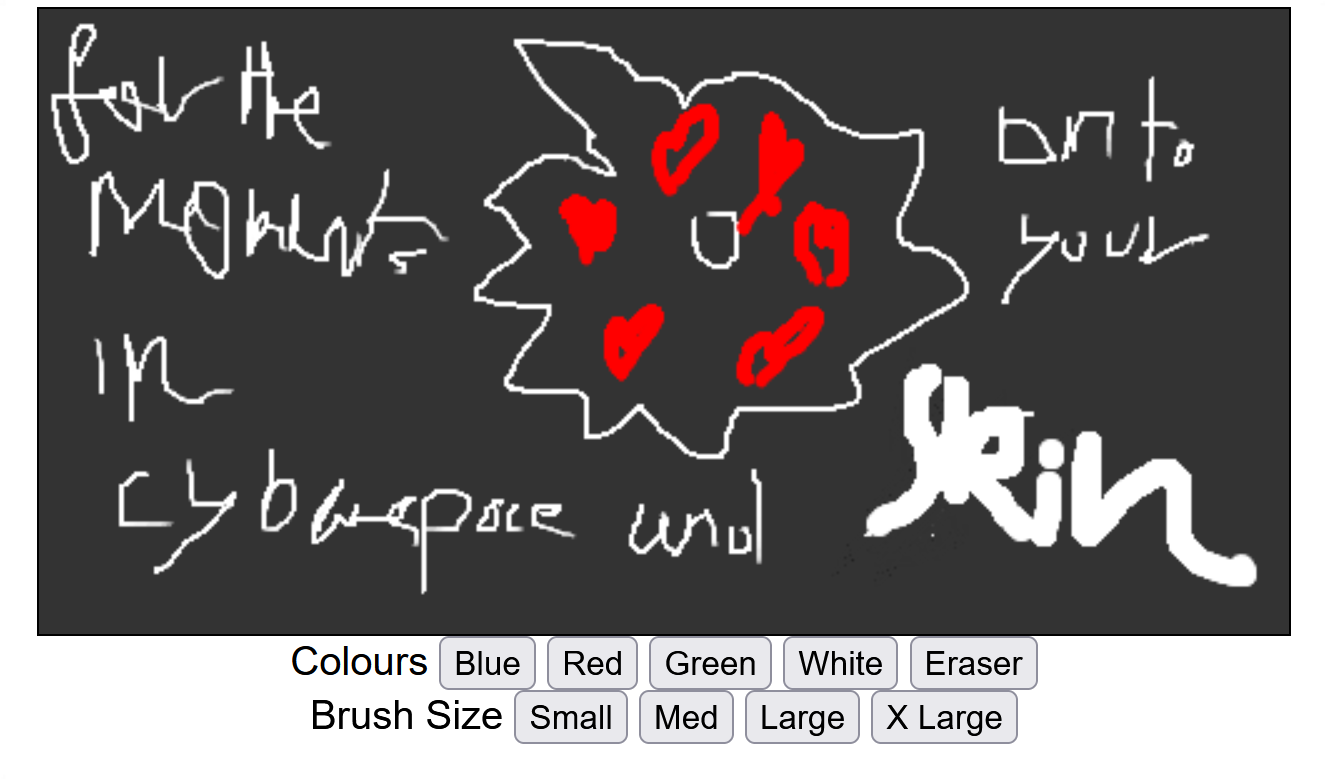 for the
moments
in
cyberspace and
onto
your
skin
Colours Blue Red Green White Eraser
Brush Size Small Med Large X Large